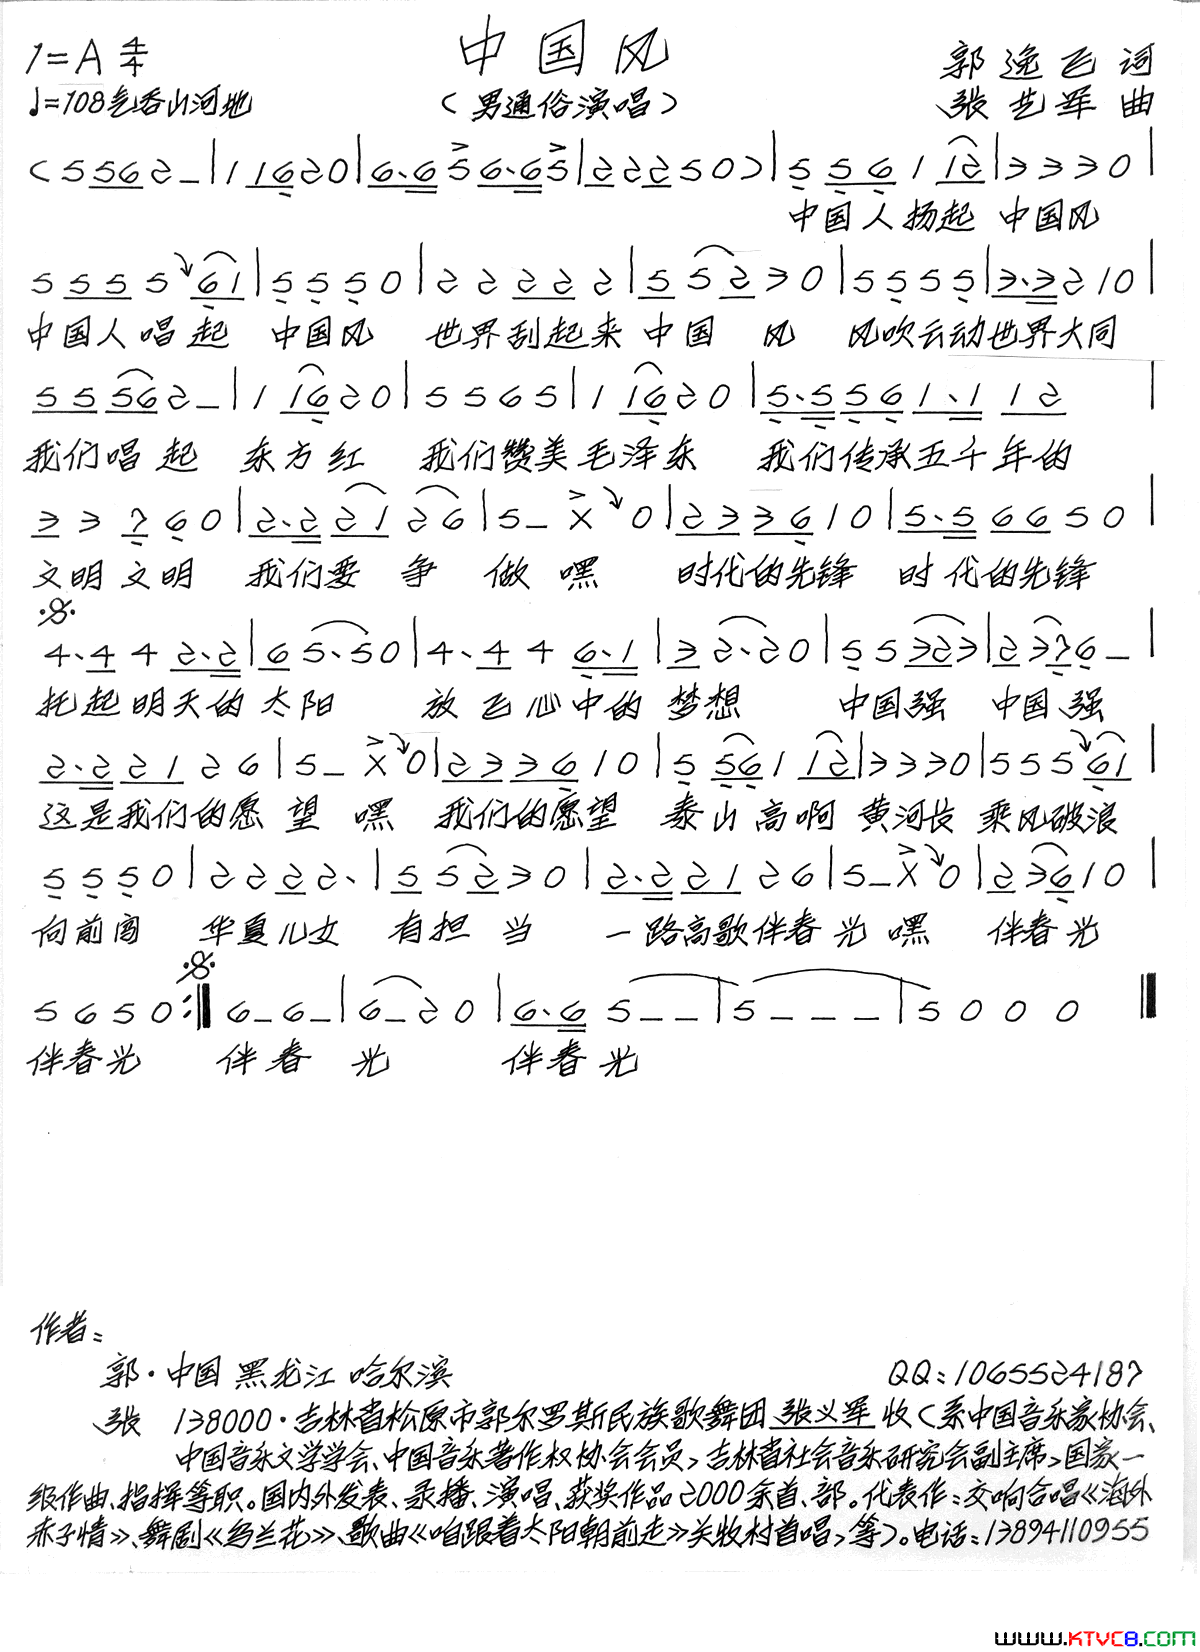 中国风
1=A 4/4
郭逸飞 词
♩=108 气吞山河地
(男通俗演唱)
张艺军 曲
(5 5 6 2 – | 1 1 6 2 0 | 6·6 5 6·6 5 | 2 2 2 5 0) | 5 5 6 1 1 2 | 3 3 3 0 |
中国人扬起 中国风
5 5 5 5 6 1 | 5 5 5 0 | 2 2 2 2 2 | 5 5 2 3 0 | 5 5 5 5 | 3·3 2 1 0 |
中国人唱起 中国风 世界刮起来中国 风 风吹云动世界大同
5 5 5 6 2 – | 1 1 6 2 0 | 5 5 6 5 | 1 1 6 2 0 | 5·5 5 6 1·1 1 2 |
我们唱起 东方红 我们赞美毛泽东 我们传承五千年的
3 3 7 6 0 | 2·2 2 1 2 6 | 5 – X 0 | 2 3 3 6 1 0 | 5·5 6 6 5 0 |
文明文明 我们要 争 做嘿 时代的先锋 时代的先锋
4·4 4 2·2 | 6 5·5 0 | 4·4 4 6·1 | 3 2·2 0 | 5 5 3 2 3 | 2 3 7 6 – |
托起明天的太阳 放飞心中的梦想 中国强 中国强
2·2 2 1 2 6 | 5 – X 0 | 2 3 3 6 1 0 | 5 5 6 1 1 2 | 3 3 3 0 | 5 5 5 6 1 |
这是我们的愿 望 嘿 我们的愿望 泰山高啊 黄河长 乘风破浪
5 5 5 0 | 2 2 2 2· | 5 5 2 3 0 | 2·2 2 1 2 6 | 5 – X 0 | 2 3 6 1 0 |
向前闯 华夏儿女 有担 当 一路高歌伴春光嘿 伴春光
5 6 5 0 :‖ 6 – 6 – | 6 – 2 0 | 6·6 5 – – | 5 – – – | 5 0 0 0 ‖
伴春光 伴春 光 伴春光
作者:
郭·中国 黑龙江 哈尔滨 QQ:1065524187
张 138000·吉林省松原市郭尔罗斯民族歌舞团 张义军 收(系中国音乐家协会、
中国音乐文学学会、中国音乐著作权协会会员,吉林省社会音乐研究会副主席,国家一
级作曲、指挥等职。国内外发表、录播、演唱、获奖作品2000余首、部。代表作:交响合唱《海外
赤子情》、舞剧《乌兰花》、歌曲《咱跟着太阳朝前走》关牧村首唱,等)。电话:13894110955
www.KTVC8.com